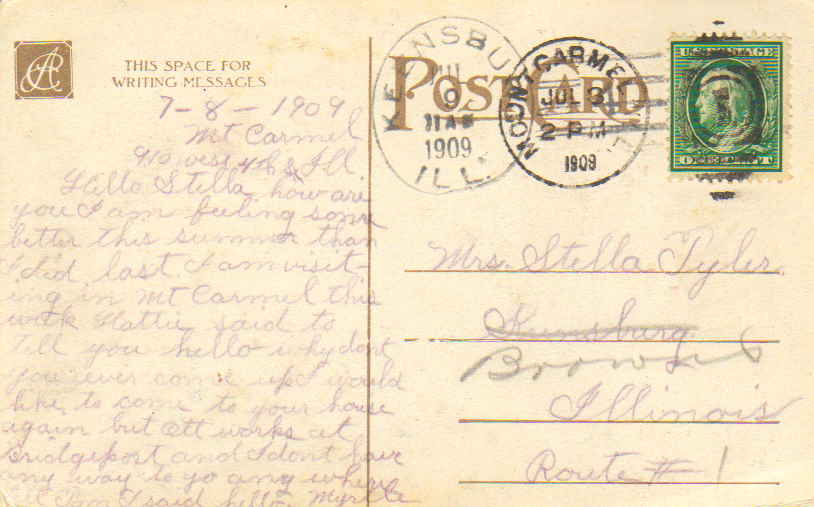 THIS SPACE FOR
WRITING MESSAGES
7-8-1909
Mt Carmel
910 west 4th St Ill.
Hello Stella how are
you I am feeling some
better this summer than
I did last. I am visit-
ing in Mt Carmel this
week Hattie said to
tell you hello why dont
you ever come up I would
like to come to your house
again but Ott works at
Bridgeport and I dont have
any way to go any where
I said hello. Myrtle
POST CARD
KEENSBURG
JUL
9
11 AM
1909
ILL.
MOUNT CARMEL
JUL 8
2 PM
1909
Mrs. Stella Tyler
Keensburg
Browns
Illinois
Route #1